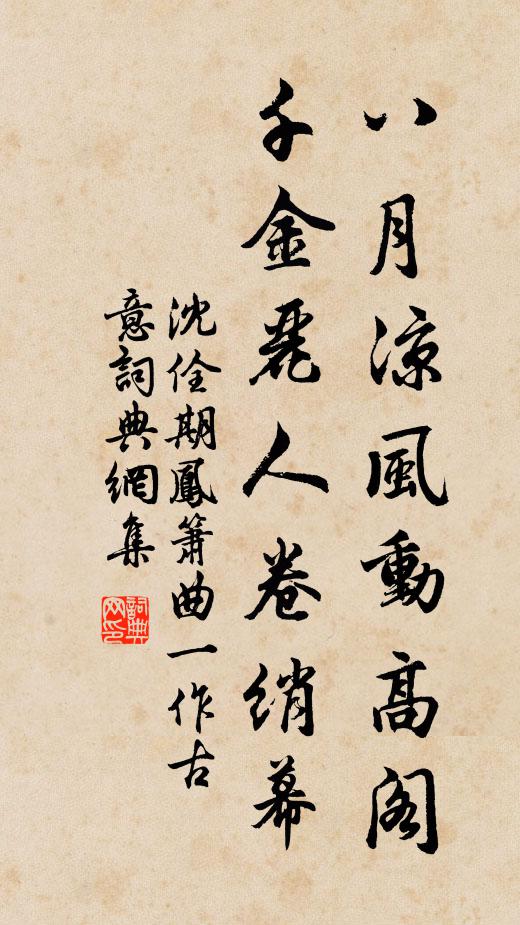 八月涼風動高閣
千金麗人卷綃幕
沈佺期鳳簫曲一作古
意詞典網集
詞典網印